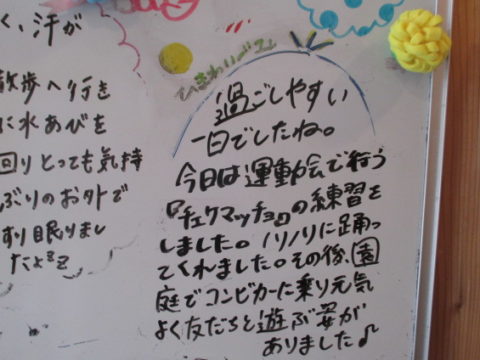 く、汗が
散歩へ行き
に水あびを
回りとっても気持
ぶりのお外で
すり眠りまし
たよzzz
ひまわりぐみ
過ごしやすい
一日でしたね。
今日は運動会で行う
『チェケマッチョ』の練習を
しました。ノリノリに踊っ
てくれました。その後、園
庭でコンビカーに乗り元気
よく友だちと遊ぶ姿が
ありました♪